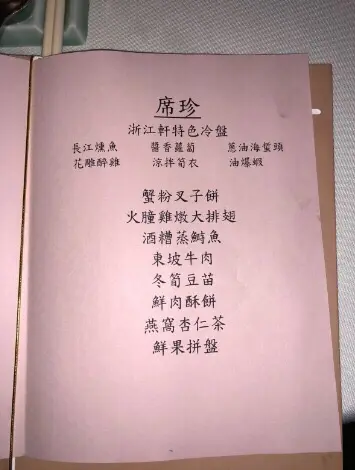 席珍
浙江軒特色冷盤
長江燻魚 醬香蘿蔔 蔥油海蜇頭
花雕醉雞 涼拌筍衣 油爆蝦
蟹粉叉子餅
火腫雞燉大排翅
酒糟蒸鰣魚
東坡牛肉
冬筍豆苗
鮮肉酥餅
燕窩杏仁茶
鮮果拼盤